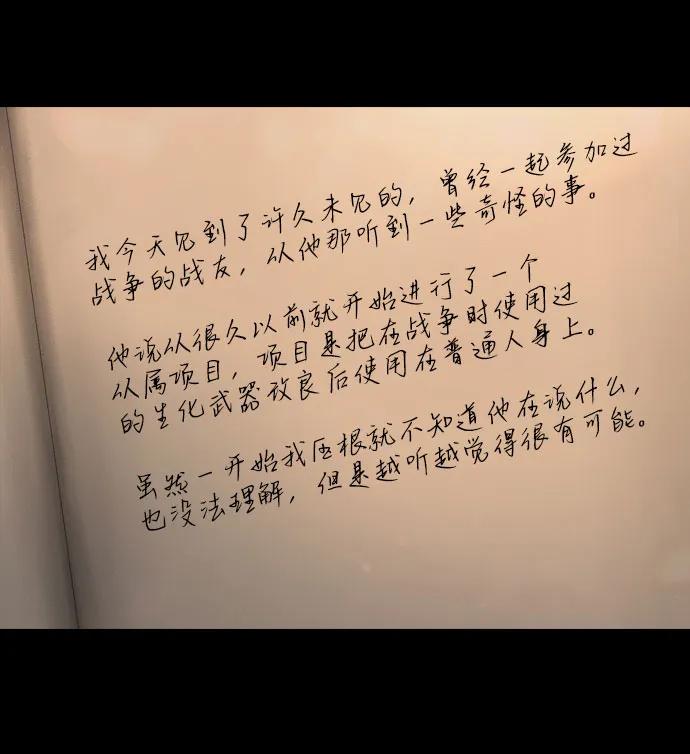 我今天见到了许久未见的，曾经一起参加过
战争的战友，从他那听到一些奇怪的事。
他说从很久以前就开始进行了一个
从属项目，项目是把在战争时使用过
的生化武器改良后使用在普通人身上。
虽然一开始我压根就不知道他在说什么，
也没法理解，但是越听越觉得很有可能。